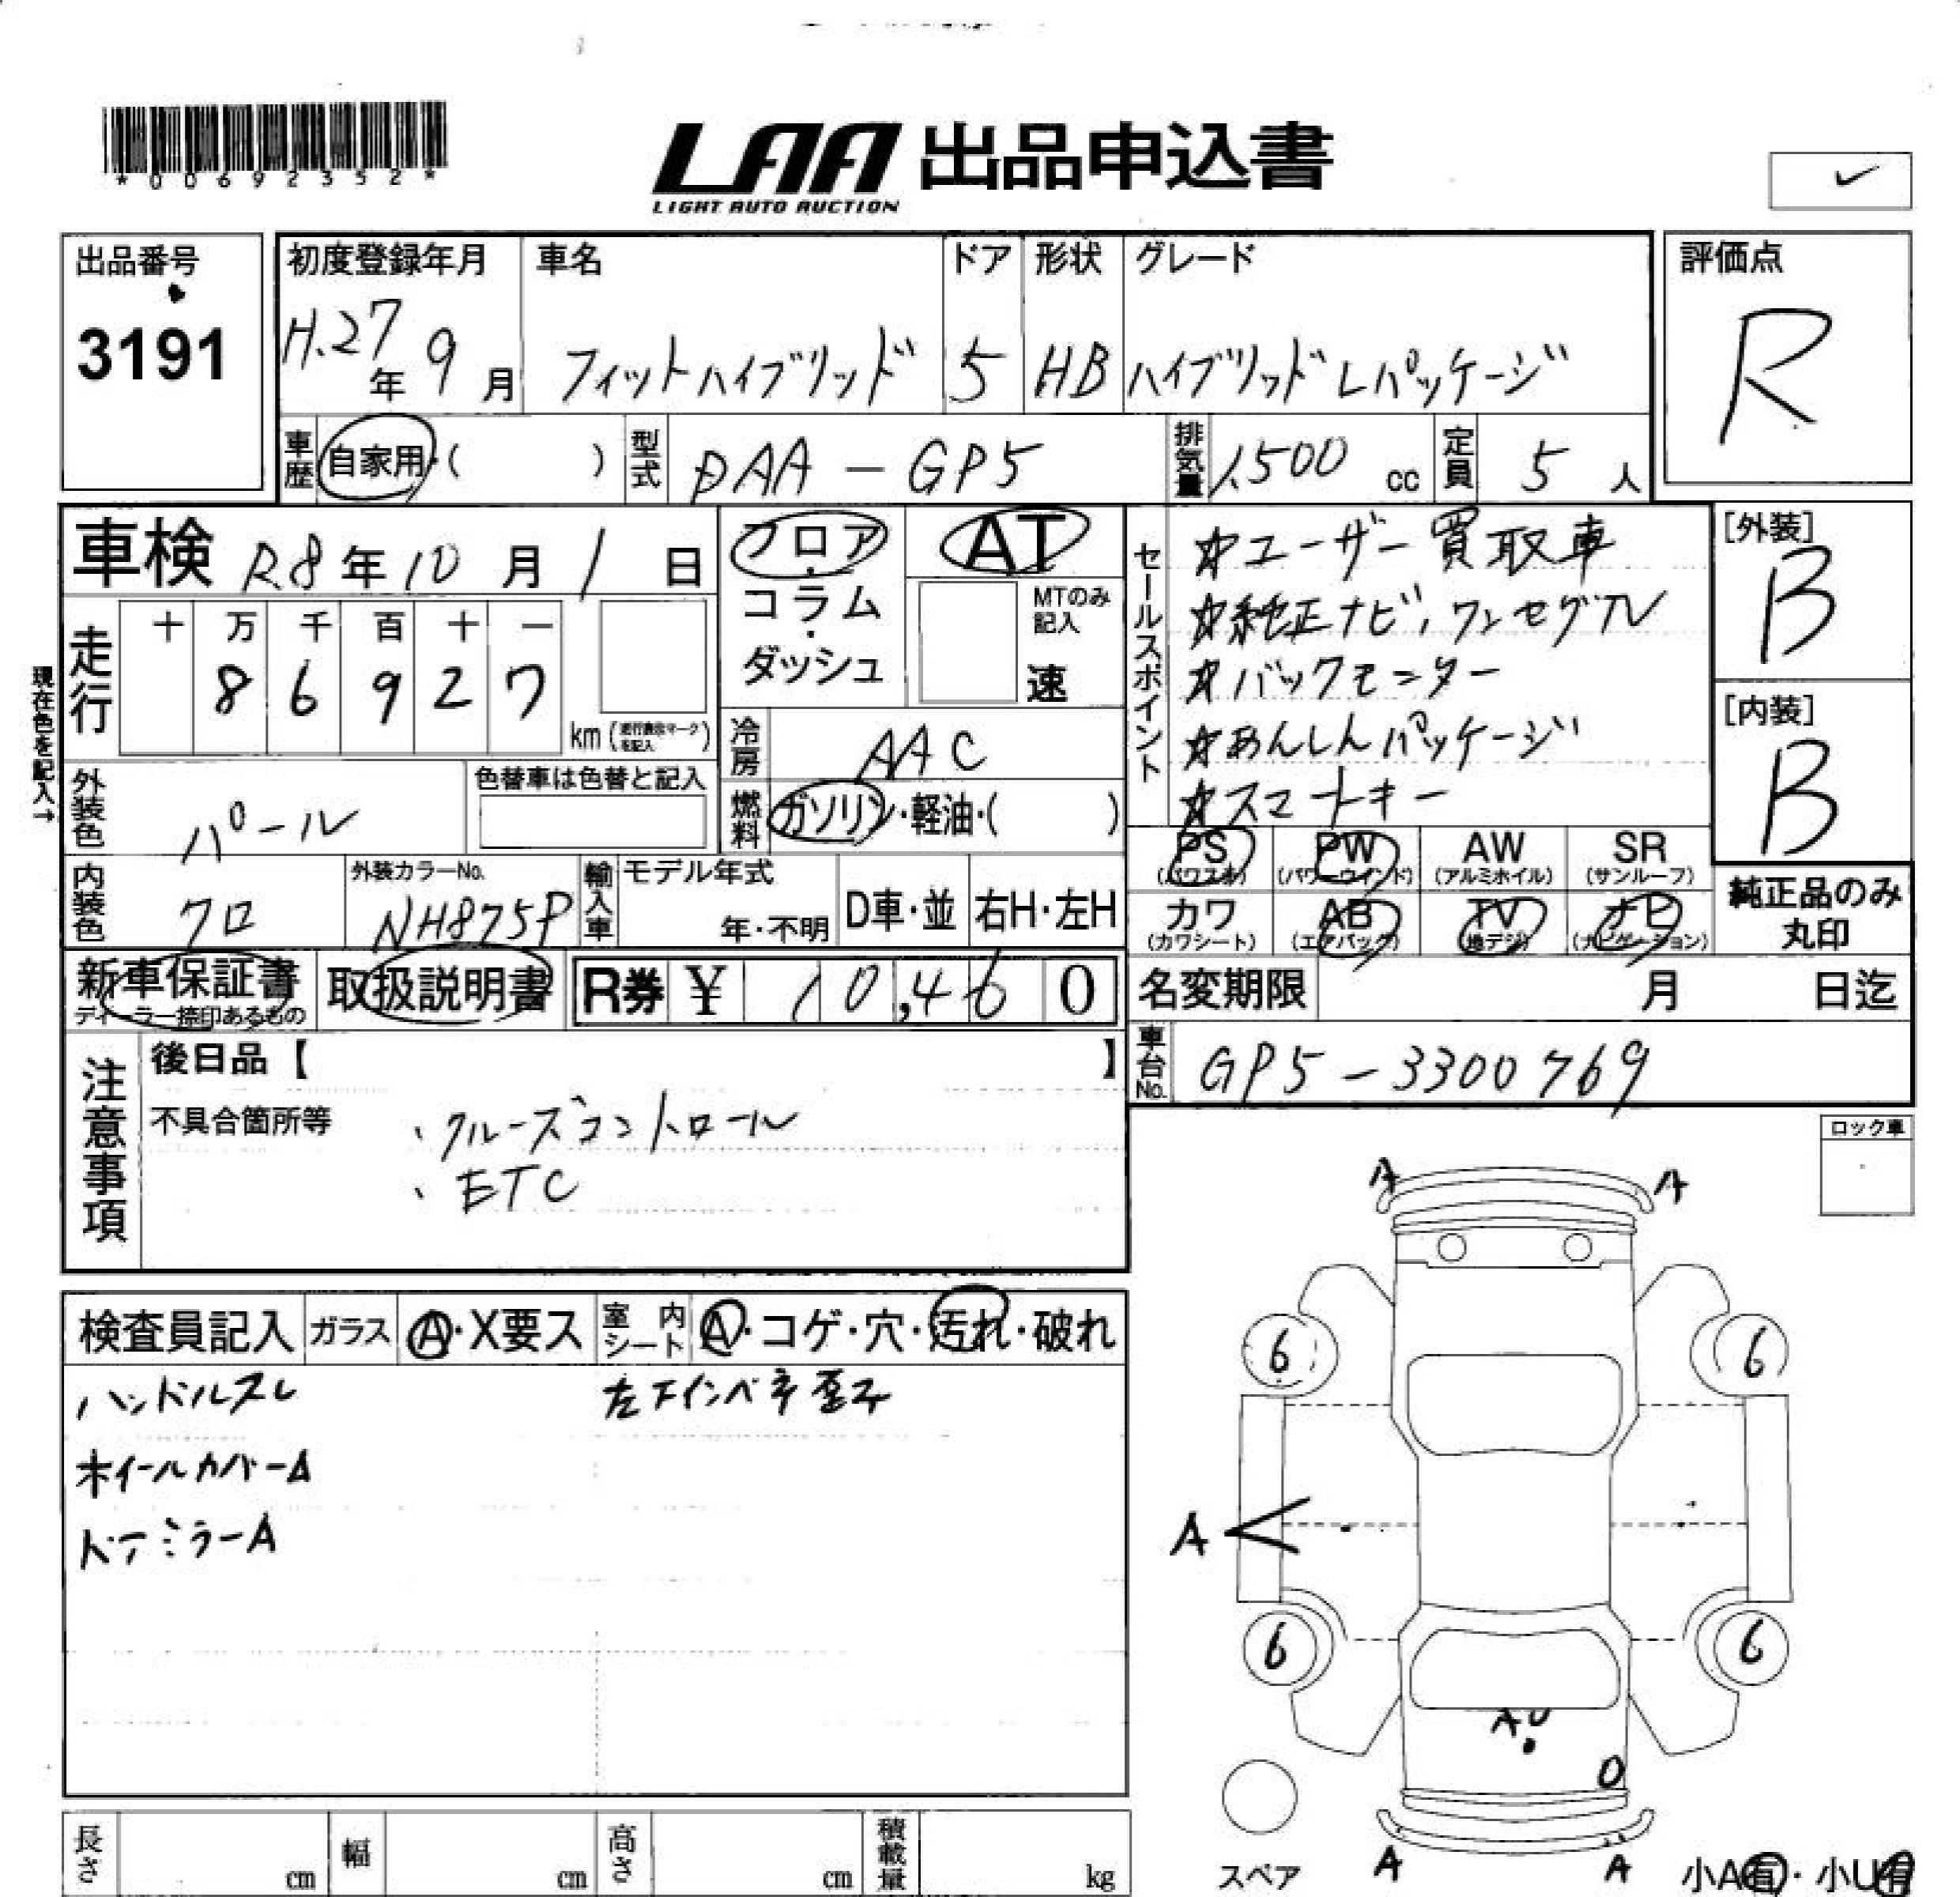 *00692352*
LAA 出品申込書
LIGHT AUTO AUCTION
✓
出品番号
3191
初度登録年月
H.27年 9月
車名
フィットハイブリッド
ドア
5
形状
HB
グレード
ハイブリッドLパッケージ
評価点
R
車歴 自家用・( )
型式 DAA-GP5
排気量 1,500 cc
定員 5 人
車検 R8年10月1日
フロア・コラム・ダッシュ
AT
MTのみ記入
速
セールスポイント
☆ユーザー買取車
☆純正ナビ,ワンセグTV
☆バックモニター
☆あんしんパッケージ
☆スマートキー
[外装]
B
[内装]
B
現在色を記入→
走行
十 万 千 百 十 一
8 6 9 2 7
km (走行表示マークを記入)
冷房 AAC
燃料 ガソリン・軽油・( )
外装色 パール
色替車は色替と記入
内装色 クロ
外装カラーNo.
NH875P
輸入車
モデル年式
年・不明
D車・並
右H・左H
PS (パワステ)
PW (パワーウインド)
AW (アルミホイル)
SR (サンルーフ)
カワ (カワシート)
AB (エアバック)
TV (地デジ)
ナビ (ナビゲーション)
純正品のみ丸印
新車保証書
ディーラー捺印あるもの
取扱説明書
R券 ¥ 10,460
名変期限 月 日迄
車台No. GP5-3300769
注意事項
後日品【 】
不具合箇所等
・クルーズコントロール
・ETC
ロック車
検査員記入
ガラス A・X要ス
室内シート A・コゲ・穴・汚れ・破れ
ハンドルスレ
左下インペネ歪み
ホイールカバーA
ドアミラーA
A A
6 6
A
6 6
AU
O
A A
スペア
小A有・小U有
長さ cm
幅 cm
高さ cm
積載量 kg